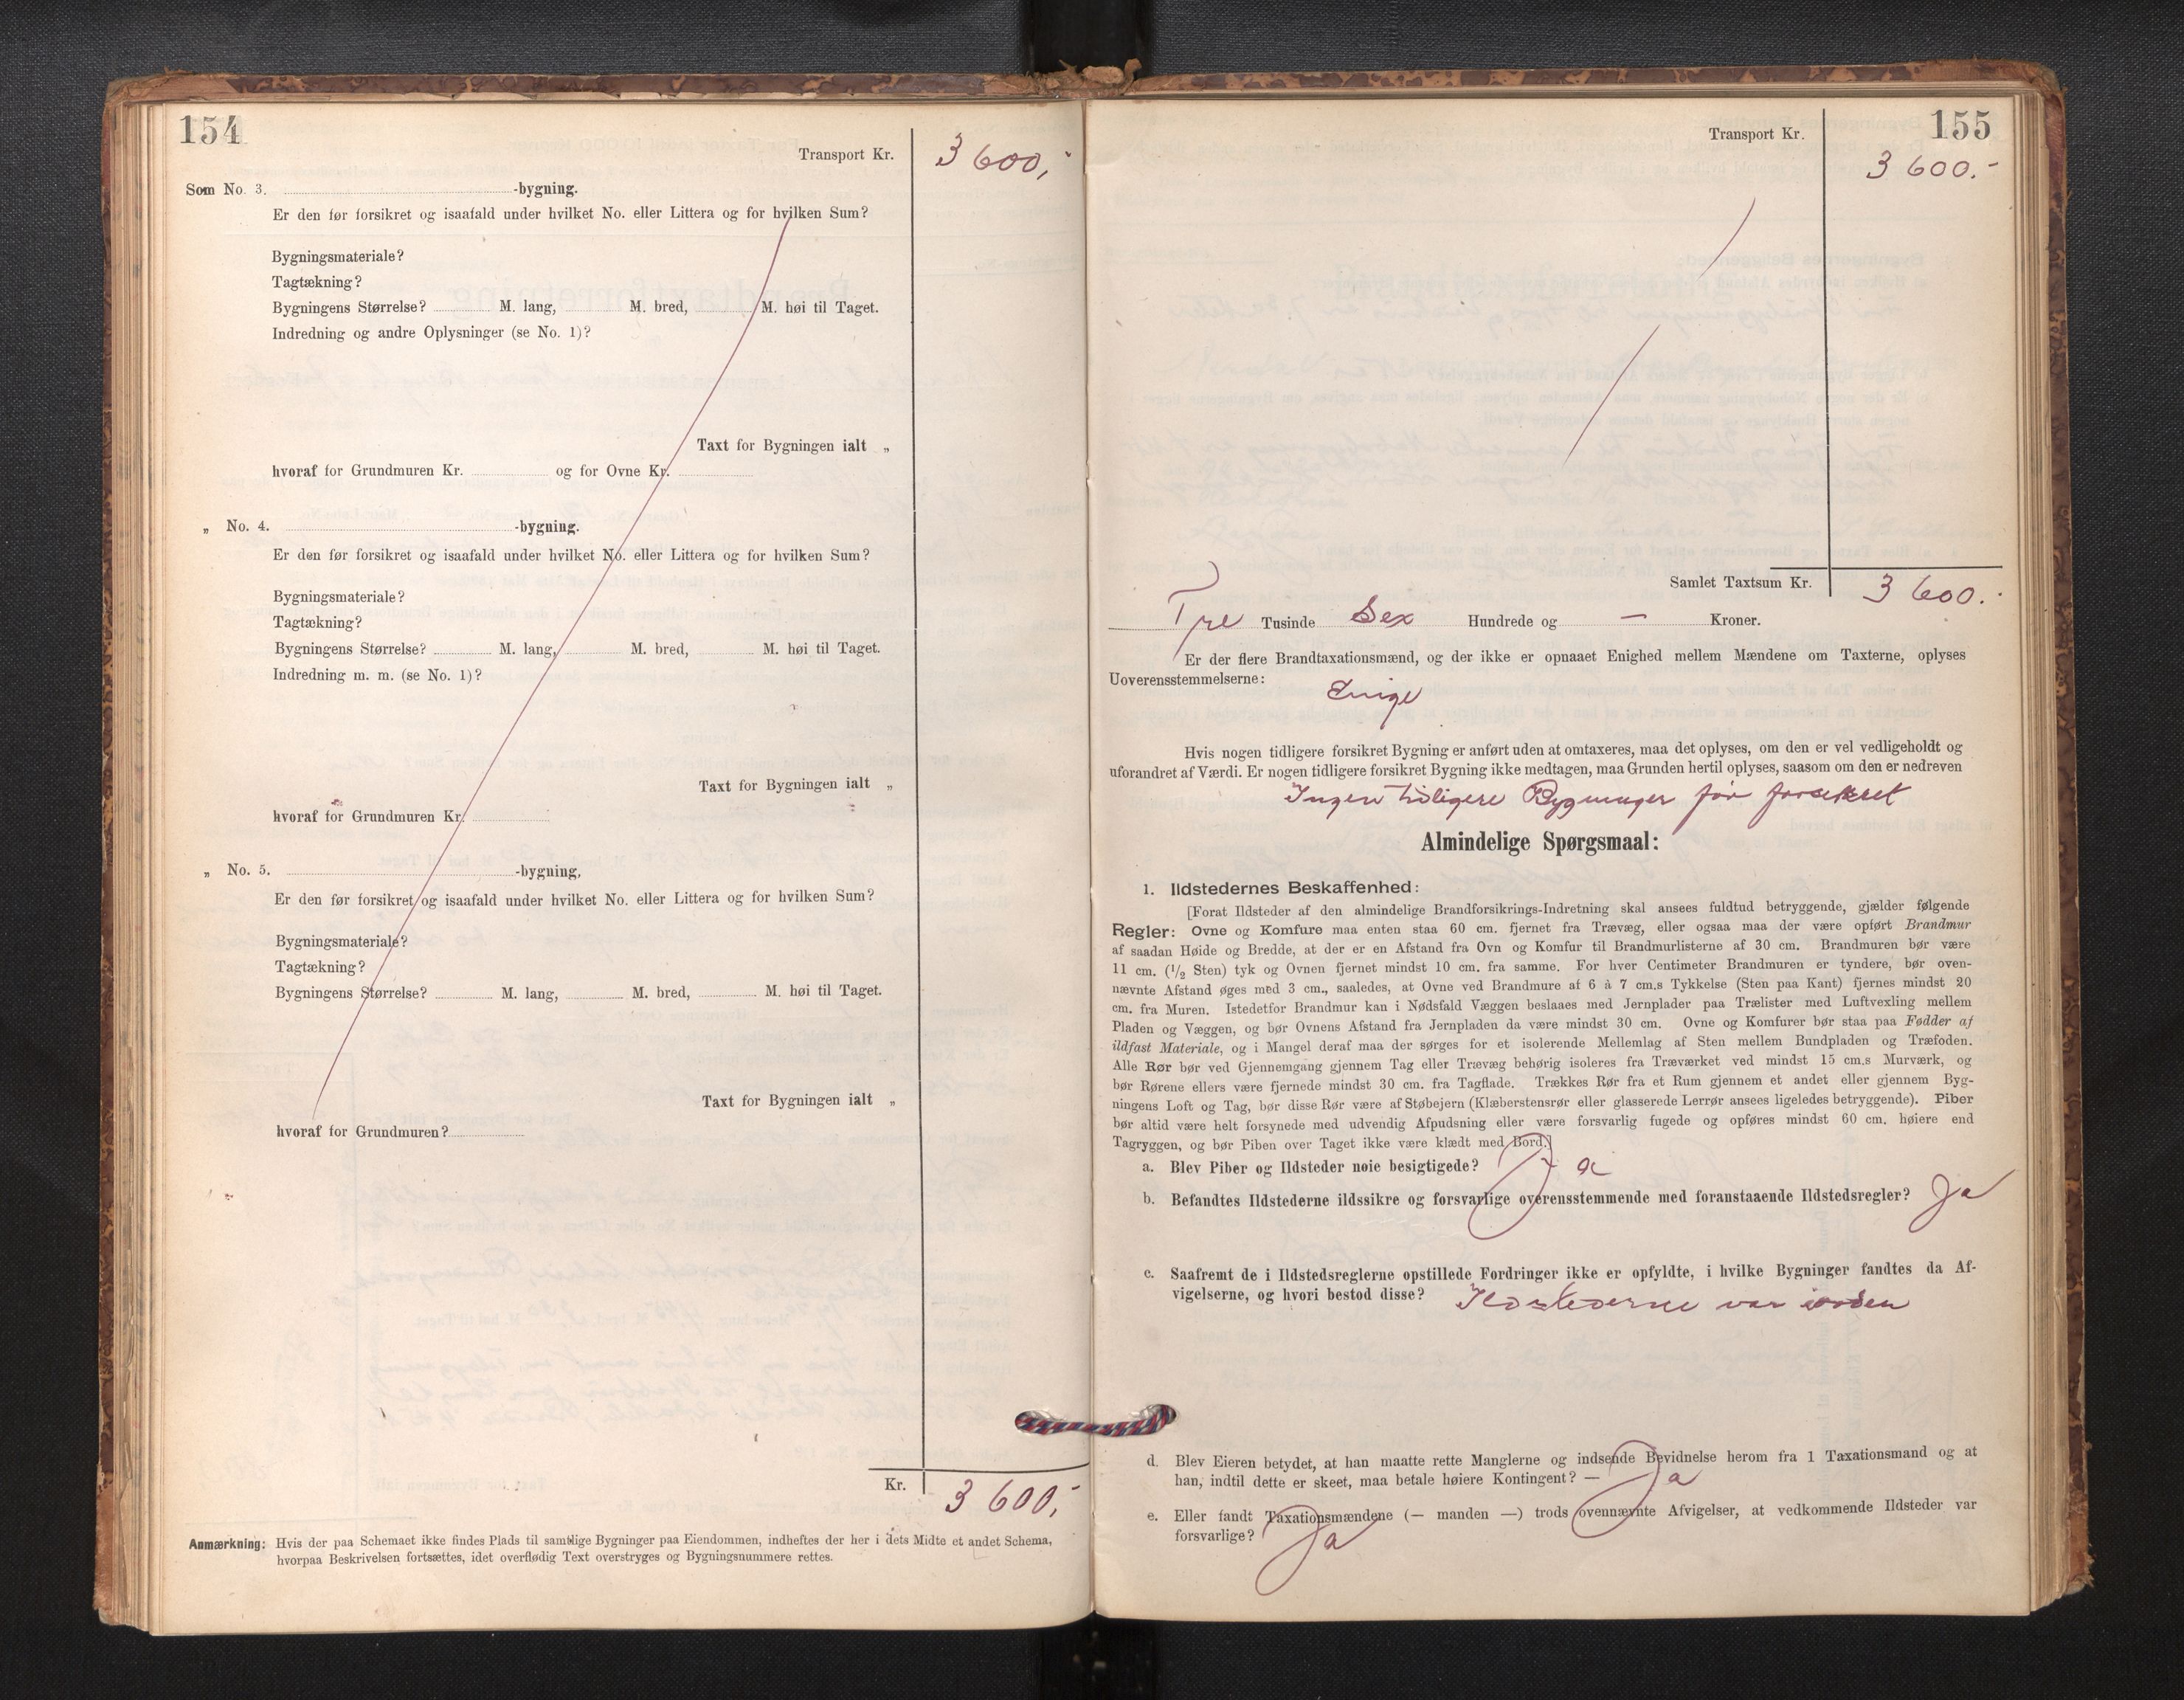 154
Transport Kr. 3 600,-
Som No. 3. -bygning.
Er den før forsikret og isaafald under hvilket No. eller Littera og for hvilken Sum?
Bygningsmateriale?
Tagtækning?
Bygningens Størrelse? M. lang, M. bred, M. høi til Taget.
Indredning og andre Oplysninger (se No. 1)?
Taxt for Bygningen ialt „
hvoraf for Grundmuren Kr. og for Ovne Kr.
„ No. 4. -bygning.
Er den før forsikret og isaafald under hvilket No. eller Littera og for hvilken Sum?
Bygningsmateriale?
Tagtækning?
Bygningens Størrelse? M. lang, M. bred, M. høi til Taget.
Indredning m. m. (se No. 1)?
Taxt for Bygningen ialt „
hvoraf for Grundmuren Kr.
„ No. 5. -bygning,
Er den før forsikret og isaafald under hvilket No. eller Littera og for hvilken Sum?
Bygningsmateriale?
Tagtækning?
Bygningens Størrelse? M. lang, M. bred, M. høi til Taget.
Taxt for Bygningen ialt „
hvoraf for Grundmuren?
Kr. 3 600,-
Anmærkning: Hvis der paa Schemaet ikke findes Plads til samtlige Bygninger paa Eiendommen, indheftes der her i dets Midte et andet Schema,
hvorpaa Beskrivelsen fortsættes, idet overflødig Text overstryges og Bygningsnummere rettes.
155
Transport Kr.
3 600.-
Samlet Taxtsum Kr. 3 600.-
Tre Tusinde Sex Hundrede og — Kroner.
Er der flere Brandtaxationsmænd, og der ikke er opnaaet Enighed mellem Mændene om Taxterne, oplyses
Uoverensstemmelserne:
Enige
Hvis nogen tidligere forsikret Bygning er anført uden at omtaxeres, maa det oplyses, om den er vel vedligeholdt og
uforandret af Værdi. Er nogen tidligere forsikret Bygning ikke medtagen, maa Grunden hertil oplyses, saasom om den er nedreven
Ingen tidligere Bygninger før forsikret
Almindelige Spørgsmaal:
1. Ildstedernes Beskaffenhed:
[Forat Ildsteder af den almindelige Brandforsikrings-Indretning skal ansees fuldtud betryggende, gjælder følgende
Regler: Ovne og Komfure maa enten staa 60 cm. fjernet fra Trævæg, eller ogsaa maa der være opført Brandmur
af saadan Høide og Bredde, at der er en Afstand fra Ovn og Komfur til Brandmurlisterne af 30 cm. Brandmuren bør være
11 cm. (1/2 Sten) tyk og Ovnen fjernet mindst 10 cm. fra samme. For hver Centimeter Brandmuren er tyndere, bør oven-
nævnte Afstand øges med 3 cm., saaledes, at Ovne ved Brandmure af 6 à 7 cm.s Tykkelse (Sten paa Kant) fjernes mindst 20
cm. fra Muren. Istedetfor Brandmur kan i Nødsfald Væggen beslaaes med Jernplader paa Trælister med Luftvexling mellem
Pladen og Væggen, og bør Ovnens Afstand fra Jernpladen da være mindst 30 cm. Ovne og Komfurer bør staa paa Fødder af
ildfast Materiale, og i Mangel deraf maa der sørges for et isolerende Mellemlag af Sten mellem Bundpladen og Træfoden.
Alle Rør bør ved Gjennemgang gjennem Tag eller Trævæg behørig isoleres fra Træværket ved mindst 15 cm.s Murværk, og
bør Rørene ellers være fjernede mindst 30 cm. fra Tagflade. Trækkes Rør fra et Rum gjennem et andet eller gjennem Byg-
ningens Loft og Tag, bør disse Rør være af Støbejern (Klæberstensrør eller glasserede Lerrør ansees ligeledes betryggende). Piber
bør altid være helt forsynede med udvendig Afpudsning eller være forsvarlig fugede og opføres mindst 60 cm. høiere end
Tagryggen, og bør Piben over Taget ikke være klædt med Bord.]
a. Blev Piber og Ildsteder nøie besigtigede? Ja
b. Befandtes Ildstederne ildssikre og forsvarlige overensstemmende med foranstaaende Ildstedsregler? Ja
c. Saafremt de i Ildstedsreglerne opstillede Fordringer ikke er opfyldte, i hvilke Bygninger fandtes da Af-
vigelserne, og hvori bestod disse? Ildstederne var
d. Blev Eieren betydet, at han maatte rette Manglerne og indsende Bevidnelse herom fra 1 Taxationsmand og at
han, indtil dette er skeet, maa betale høiere Kontingent? — Ja
e. Eller fandt Taxationsmændene (— manden —) trods ovennævnte Afvigelser, at vedkommende Ildsteder var
forsvarlige? Ja